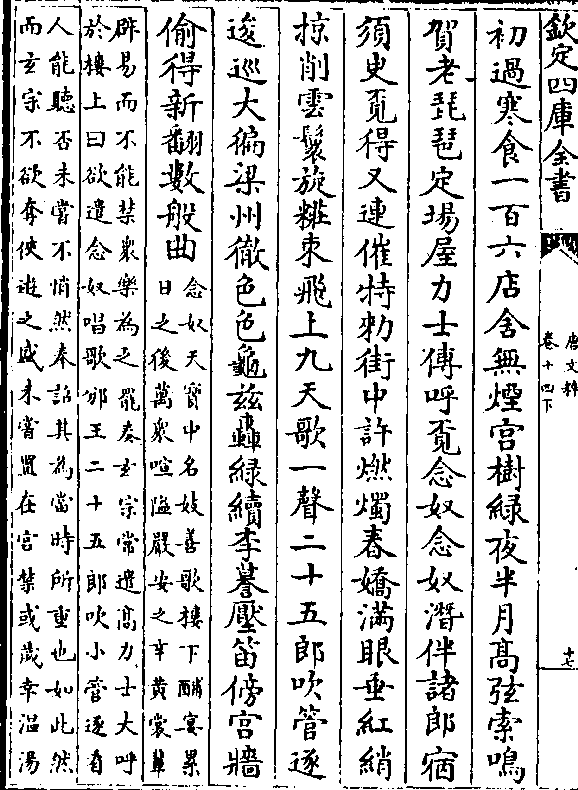 欽定四庫全書
唐文粹
卷十四下
十七
初過寒食一百六店舍無煙宮樹緑夜半月髙弦索鳴
賀老琵琶定場屋力士傳呼覔念奴念奴潛伴諸郎宿
須㬰覔得又連催特勅街中許燃燭春嬌滿眼垂紅綃
掠削雲鬟旋糚束飛上九天歌一聲二十五郎吹管逐
逡巡大徧梁州徹色色龜兹轟緑續李謩壓笛傍宮牆
偷得新翻數般曲
念奴天寶中名妓善歌樓下酺宴累
日之後萬衆喧隘嚴安之韋黄裳輩
辟易而不能禁衆樂為之罷奏玄宗常遣髙力士大呼
於樓上曰欲遣念奴唱歌邠王二十五郎吹小管逐看
人能聽否未嘗不悄然奉詔其為當時所重也如此然
而玄宗不欲奪俠遊之盛未嘗置在宮禁或歲幸溫湯